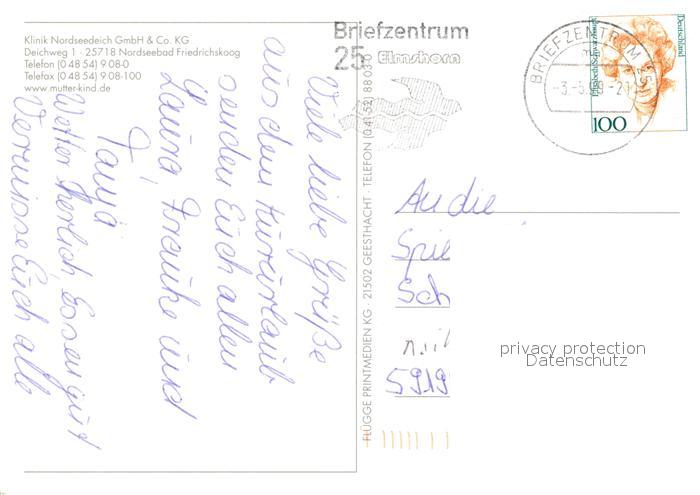 Klinik Nordseedeich GmbH & Co. KG
Deichweg 1 · 25718 Nordseebad Friedrichskoog
Telefon (0 48 54) 9 08-0
Telefax (0 48 54) 9 08-100
www.mutter-kind.de
Viele liebe Grüße
aus dem Kururlaub
senden Euch allen
Laura, Frauke und
Tanja
Wetter herlich, Essen gut
Vermisse Euch alle
FLÜGGE PRINTMEDIEN KG · 21502 GEESTHACHT · TELEFON (0 41 52) 88 03 0
Briefzentrum
25 Elmshorn
BRIEFZENTRUM 25
-3.-5.99-21
Deutschland
100
An die
Spie
Sch
5919
privacy protection
Datenschutz